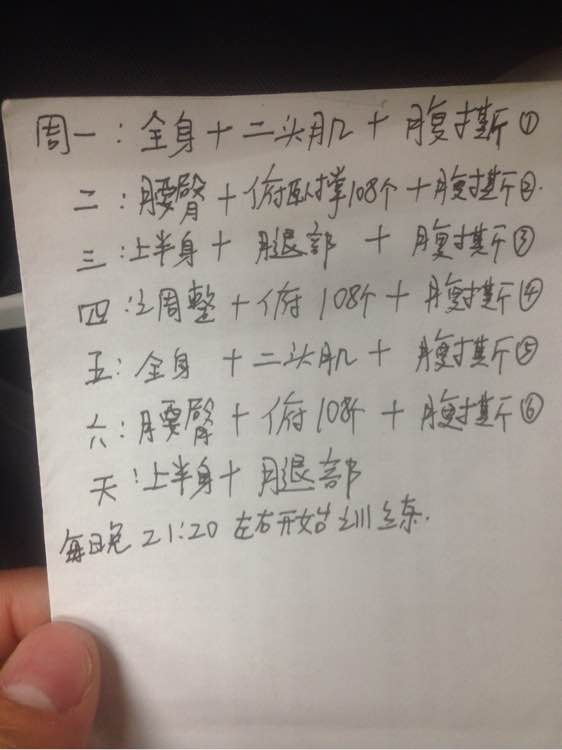 周一：全身＋二头肌＋腹撕①
二：腰臀＋俯卧撑108个＋腹撕②.
三：上半身＋腿部＋腹撕③
四：调整＋俯108个＋腹撕④
五：全身＋二头肌＋腹撕⑤
六：腰臀＋俯108个＋腹撕⑥
天：上半身＋腿部
每日晚21:20左右开始训练.